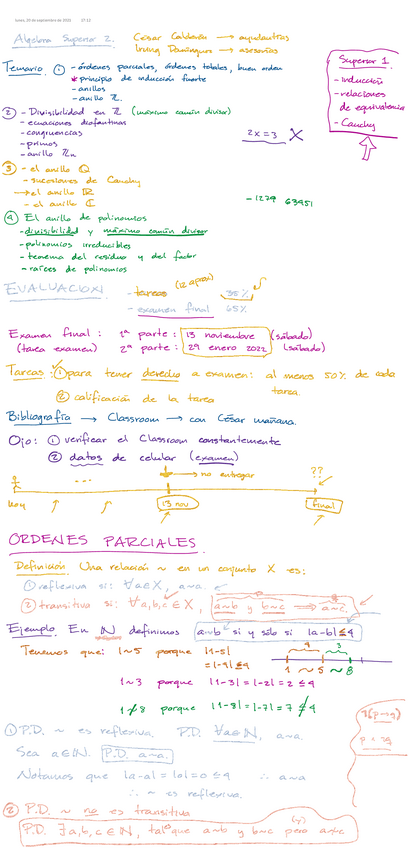 lunes, 20 de septiembre de 2021 17:12
Algebra Superior 2.
César Calderón → ayudantías
Irving Domínguez → asesorías
Temario. ① - órdenes parciales, órdenes totales, buen orden
* principio de inducción fuerte
- anillos
- anillo ℤ.
Superior 1.
- inducción
- relaciones de equivalencia
- Cauchy
② - Divisibilidad en ℤ (máximo común divisor)
- ecuaciones diofantinas
- congruencias
- primos
- anillo ℤn
2x = 3 X
③ - el anillo ℚ
- sucesiones de Cauchy
→ el anillo ℝ
- el anillo ℂ
- 1279 63951
④ El anillo de polinomios
- divisibilidad y máximo común divisor
- polinomios irreducibles
- teorema del residuo y del factor
- raíces de polinomios
EVALUACION.
- tareas (12 aprox) 35%
- examen final 65%
Examen final: 1ª parte: 13 noviembre (sábado)
(tarea examen) 2ª parte: 29 enero 2022 (sábado)
Tareas: ① para tener derecho a examen: al menos 50% de cada tarea.
② calificación de la tarea
Bibliografía → Classroom → con César mañana.
Ojo: ① verificar el Classroom constantemente
② datos de celular (examen)
→ no entregar
??
...
hoy
13 nov
final
ORDENES PARCIALES.
Definición Una relación ~ en un conjunto X es:
① reflexiva si: ∀a∈X, a~a.
② transitiva si: ∀a,b,c ∈ X, a~b y b~c ⟹ a~c.
Ejemplo. En ℕ definimos a~b si y sólo si |a-b| ≤ 4
Tenemos que: 1~5 porque |1-5|
= |-4| ≤ 4
4 3
1 ~ 5 ~ 8
1~3 porque |1-3| = |-2| = 2 ≤ 4
1≁8 porque |1-8| = |-7| = 7 ≰ 4
① P.D. ~ es reflexiva. P.D. ∀a∈ℕ, a~a.
Sea a∈ℕ. P.D. a~a.
Notamos que |a-a| = |0| = 0 ≤ 4 ∴ a~a
∴ ~ es reflexiva.
② P.D. ~ no es transitiva
P.D. ∃a,b,c ∈ ℕ, tal que a~b y b~c pero a≁c.
(y)